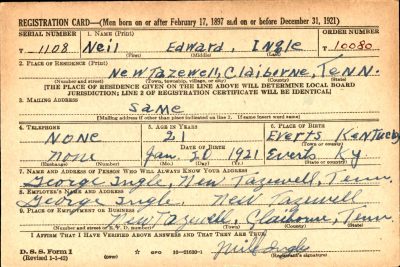 REGISTRATION CARD—(Men born on or after February 17, 1897 and on or before December 31, 1921)
SERIAL NUMBER 1. NAME (Print) ORDER NUMBER
T 1108 Neil Edward, Ingle T 10080
(First) (Middle) (Last)
2. PLACE OF RESIDENCE (Print)
New Tazewell, Claiborne, Tenn.
(Number and street) (Town, township, village, or city) (County) (State)
[THE PLACE OF RESIDENCE GIVEN ON THE LINE ABOVE WILL DETERMINE LOCAL BOARD
JURISDICTION; LINE 2 OF REGISTRATION CERTIFICATE WILL BE IDENTICAL]
3. MAILING ADDRESS
Same
[Mailing address if other than place indicated on line 2. If same insert word same]
4. TELEPHONE 5. AGE IN YEARS 6. PLACE OF BIRTH
None 21 Everts Kentucky
DATE OF BIRTH (Town or county)
none Jan. 26 1921 Everts Ky
(Exchange) (Number) (Mo.) (Day) (Yr.) (State or country)
7. NAME AND ADDRESS OF PERSON WHO WILL ALWAYS KNOW YOUR ADDRESS
George Ingle, New Tazewell, Tenn.
8. EMPLOYER'S NAME AND ADDRESS
George Ingle. New Tazewell
9. PLACE OF EMPLOYMENT OR BUSINESS
New Tazewell, Claiborne, Tenn
(Number and street or R. F. D. number) (Town) (County) (State)
I AFFIRM THAT I HAVE VERIFIED ABOVE ANSWERS AND THAT THEY ARE TRUE.
D. S. S. Form 1
(Revised 1-1-42) (over) GPO 16—21630-1
Neil Ingle
(Registrant's signature)